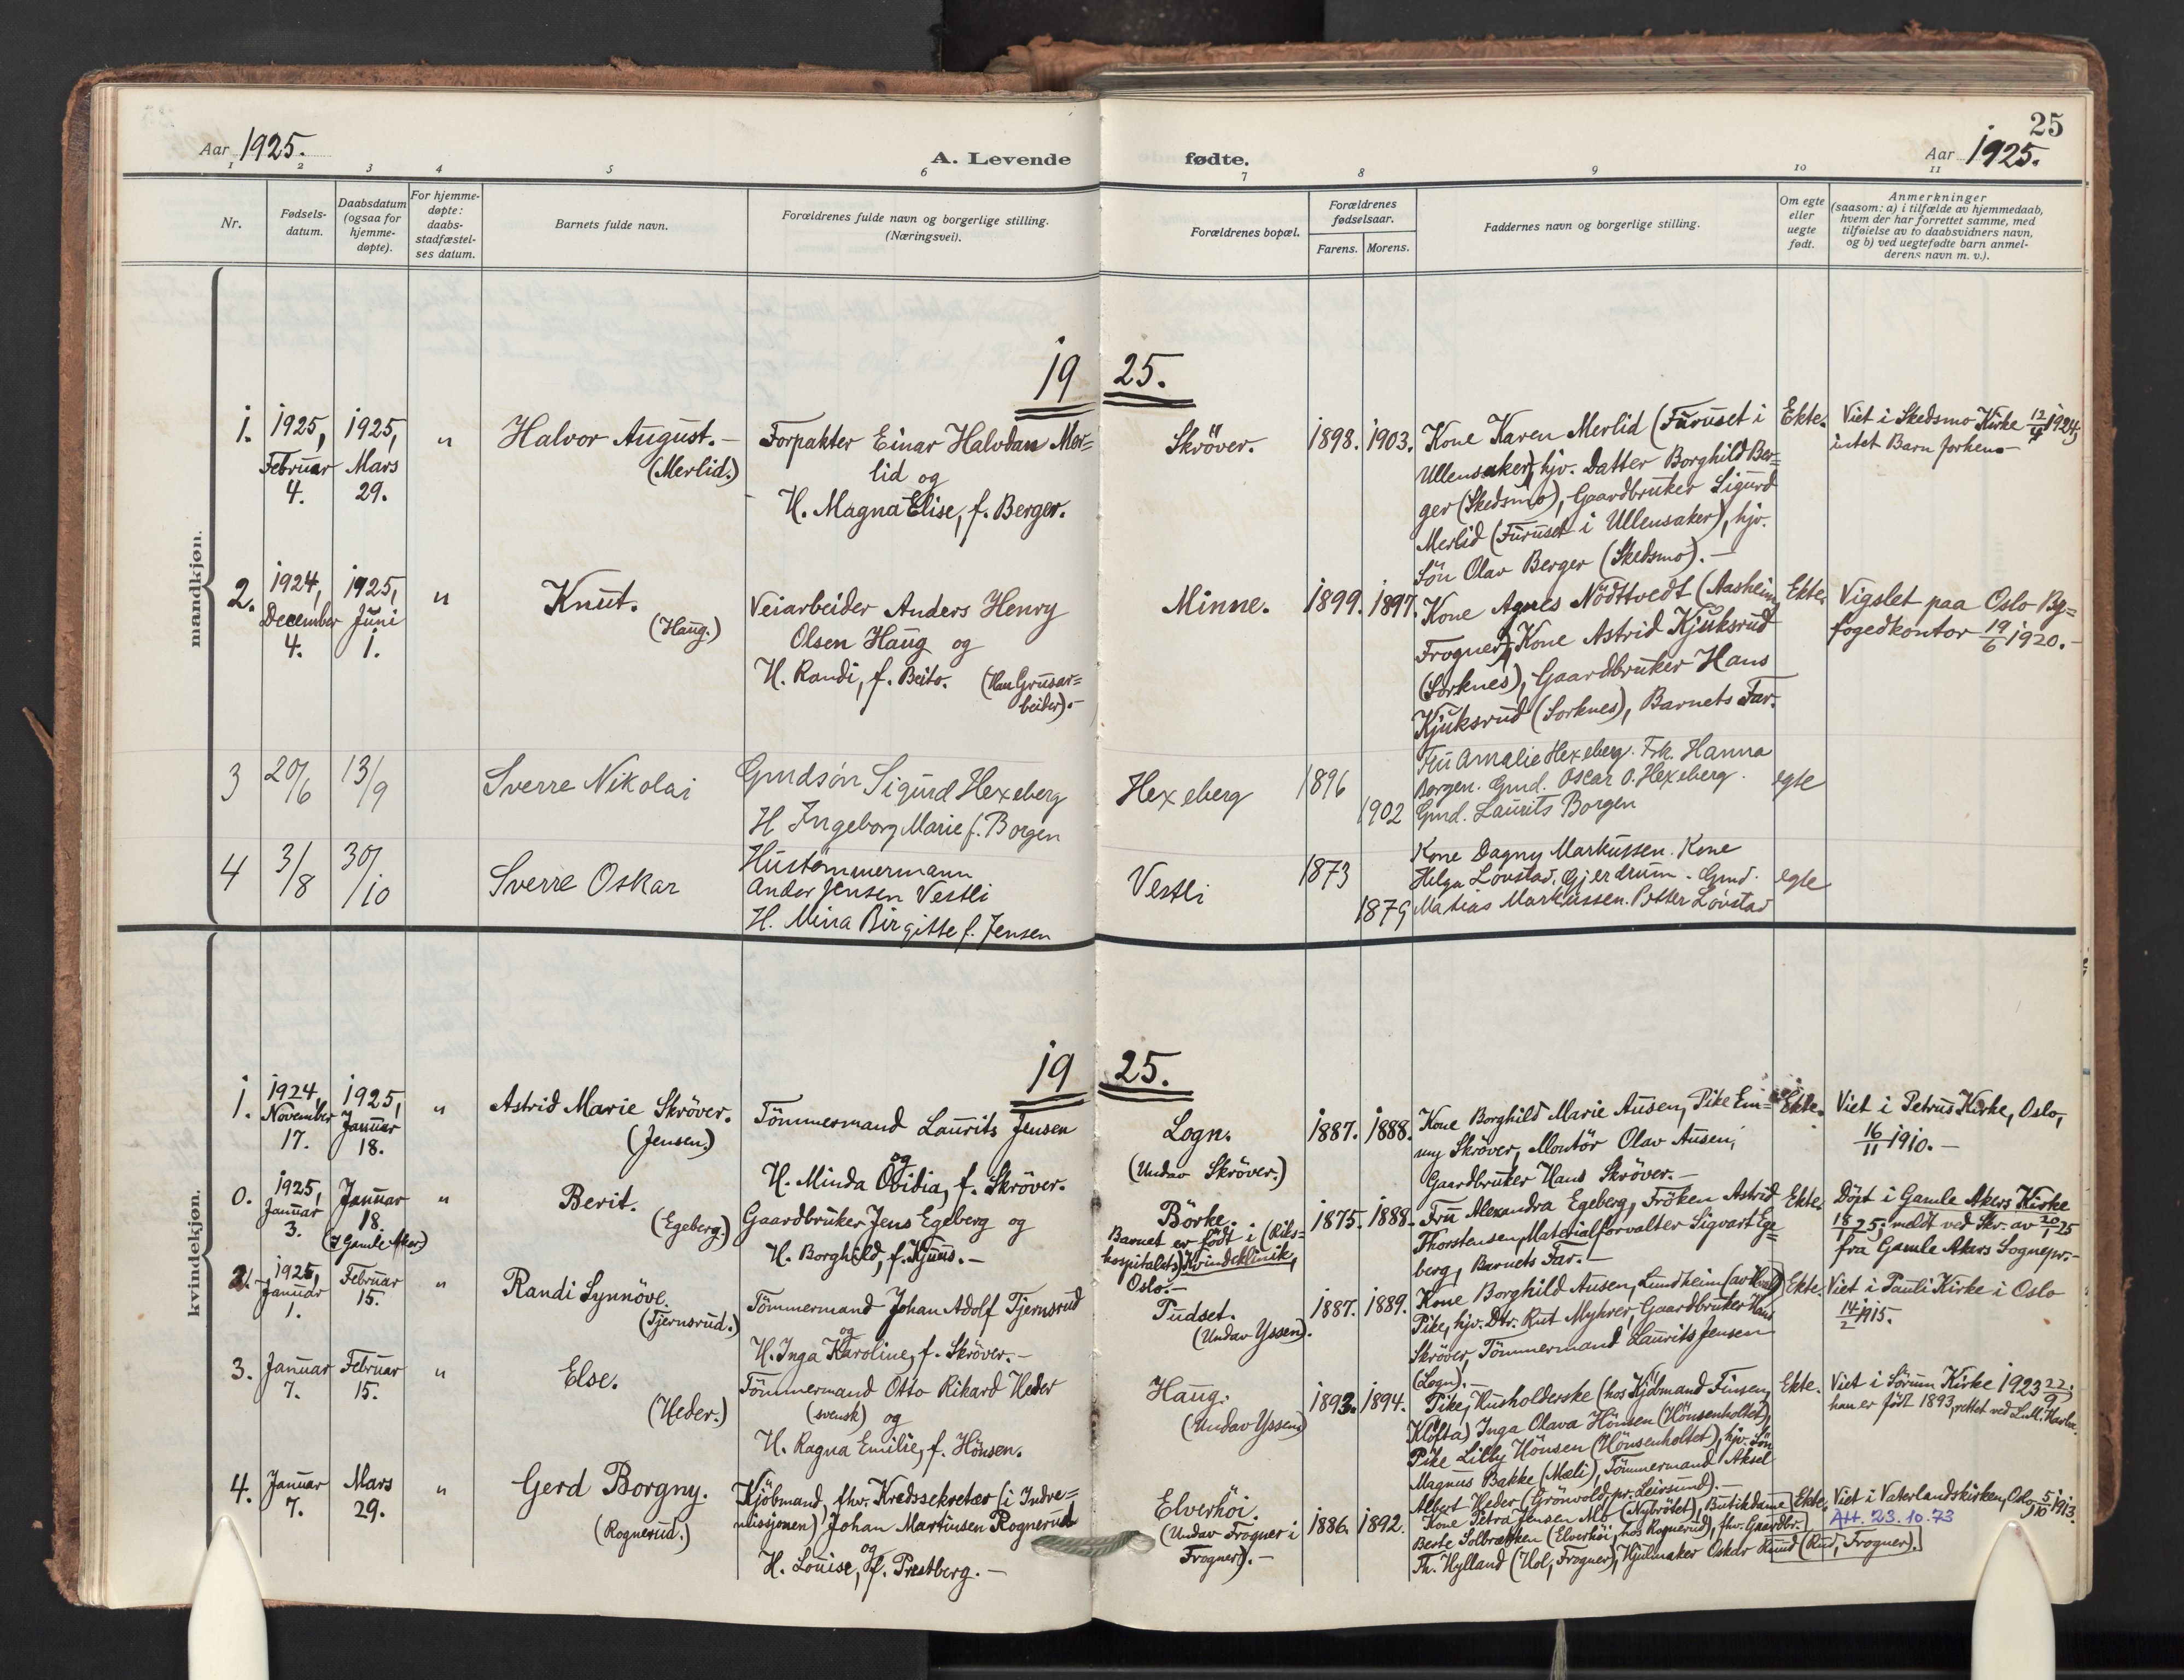 25
Aar 1925.
A. Levende fødte.
Aar 1925.
1 2 3 4 5 6 7 8 9 10 11
Nr.
Fødsels-
datum.
Daabsdatum
(ogsaa for
hjemme-
døpte).
For hjemme-
døpte:
daabs-
stadfæstel-
ses datum.
Barnets fulde navn.
Forældrenes fulde navn og borgerlige stilling.
(Næringsvei).
Forældrenes bopæl.
Forældrenes
fødselsaar.
Farens. Morens.
Faddernes navn og borgerlige stilling.
Om egte
eller
uegte
født.
Anmerkninger
(saasom: a) i tilfælde av hjemmedaab,
hvem der har forrettet samme, med
tilføielse av to daabsvidners navn,
og b) ved uegtefødte barn anmel-
derens navn m. v.).
mandkjøn.
19 25.
1.
1925,
Februar
4.
1925,
Mars
29.
"
Halvor August. —
(Merlid.)
Forpakter Einar Halvdan Mer=
lid og
H. Magna Elise, f. Berger.
Skröver.
1898. 1903.
Kone Karen Merlid (Furuset i
Ullensaker), hjv. Datter Borghild Ber=
ger (Skedsmo), Gaardbruker Sigurd
Merlid (Furuset i Ullensaker), hjv.
Sön Olav Berger (Skedsmo). —
Ekte.
Viet i Skedsmo Kirke 12/4 1924;
intet Barn forhen. —
2.
1924,
December
4.
1925,
Juni
1.
"
Knut.
(Haug.)
Veiarbeider Anders Henry
Olsen Haug og
H. Randi, f. Beito. (Han Grusar=
beider). —
Minne.
1899. 1897.
Kone Agnes Nödttvedt (Aasheim
Frogner), Kone Astrid Kjuksrud
(Sorknes), Gaardbruker Hans
Kjuksrud (Sorknes), Barnets Far.
Ekte.
Vigslet paa Oslo By=
fogedkontor 19/6 1920. —
3
20/6
13/9
Sverre Nikolai
Gmdsön Sigurd Hexeberg
H Ingeborg Marie f. Borgen
Hexeberg
1896
1902
Fru Amalie Hexeberg. Frk. Hanna
Borgen. Gmd. Oscar O. Hexeberg.
Gmd. Laurits Borgen
egte
4
3/8
30/10
Sverre Oskar
Hustömmermann
Anders Jensen Vestli
H. Mina Birgitte f. Jensen
Vestli
1873
1879
Kone Dagny Markussen. Kone
Helga Lövstad. Gjerdrum. Gmd.
Matias Markussen. Petter Lövstad
egte
kvindekjøn.
19 25.
1.
1924,
November
17.
1925,
Januar
18.
"
Astrid Marie Skröver.
(Jensen.)
Tömmermand Laurits Jensen
og
H. Minda Ovidia, f. Skröver.
Logn.
(Undav Skröver.)
1887. 1888.
Kone Borghild Marie Ausen, Pike Em=
my Skröver, Montör Olav Ausen,
Gaardbruker Hans Skröver. —
Ekte.
Viet i Petrus Kirke, Oslo,
16/11 1910. —
0.
1925,
Januar
3.
Januar
18.
(I Gamle Aker)
"
Berit.
(Egeberg.)
Gaardbruker Jens Egeberg og
H. Borghild, f. Kjuus. —
Börke.
Barnet er født i (Riks=
hospitalets) Kvindeklinik,
Oslo. —
1875. 1888.
Fru Alexandra Egeberg, Fröken Astrid
Thorstensen, Materialforvalter Sigvart Ege=
berg, Barnets Far. —
Ekte.
Döpt i Gamle Akers Kirke
18/1 25; meldt ved Skr. av 20/1 25
fra Gamle Akers Sognepr. —
2.
1925,
Januar
1.
Februar
15.
"
Randi Synnöve.
(Tjernsrud.)
Tömmermand Johan Adolf Tjernsrud
og
H. Inga Karoline, f. Skröver. —
Pudset.
(Undav Yssen).
1887. 1889.
Kone Borghild Ausen, Lundheim
Pike, hjv. Dtr. Rut Myhrer, Gaardbruker Hans
Skröver, Tömmermand Laurits Jensen
(Logn). —
Ekte.
Viet i Pauli Kirke i Oslo
14/2 1915.
3.
Januar
7.
Februar
15.
"
Else.
(Heder.)
Tömmermand Otto Rikard Heder
(svensk) og
H. Ragna Emilie, f. Hönsen.
Haug.
(Undav Yssen)
1893. 1894.
Pike, Husholderske (hos Kjöbmand Finsen,
Klöfta) Inga Olava Hönsen (Hönsenholtet),
Pike Lilly Hönsen (Hönsenholtet), hjv. Sön
Magnus Bakke (Mæli), Tömmermand Aksel
Albert Heder (Grönvold, pr. Leirsund). —
Ekte.
Viet i Sörum Kirke 1923 22/9;
han er födt 1893, rettet ved
4.
Januar
7.
Mars
29.
"
Gerd Borgny.
(Rognerud.)
Kjöbmand, fhv. Kredssekretær (i Indre=
missjonen) Johan Martinsen Rognerud
og
H. Louise, f. Prestberg. —
Elverhöi.
(Undav Frogner i
Frogner). —
1886. 1892.
Kone Petra Jensen Mo (Nybrötet), Butikdame
Berte Solbrækken (Elverhöi, hos Rognerud), fhv. Gaardbr.
Th. Hylland (Hol, Frogner), Hjulmaker Oskar Ruud (Rud, Frogner).
Ekte.
Viet i Vaterlandskirken, Oslo, 5/10 1913.
Att. 23.10.73